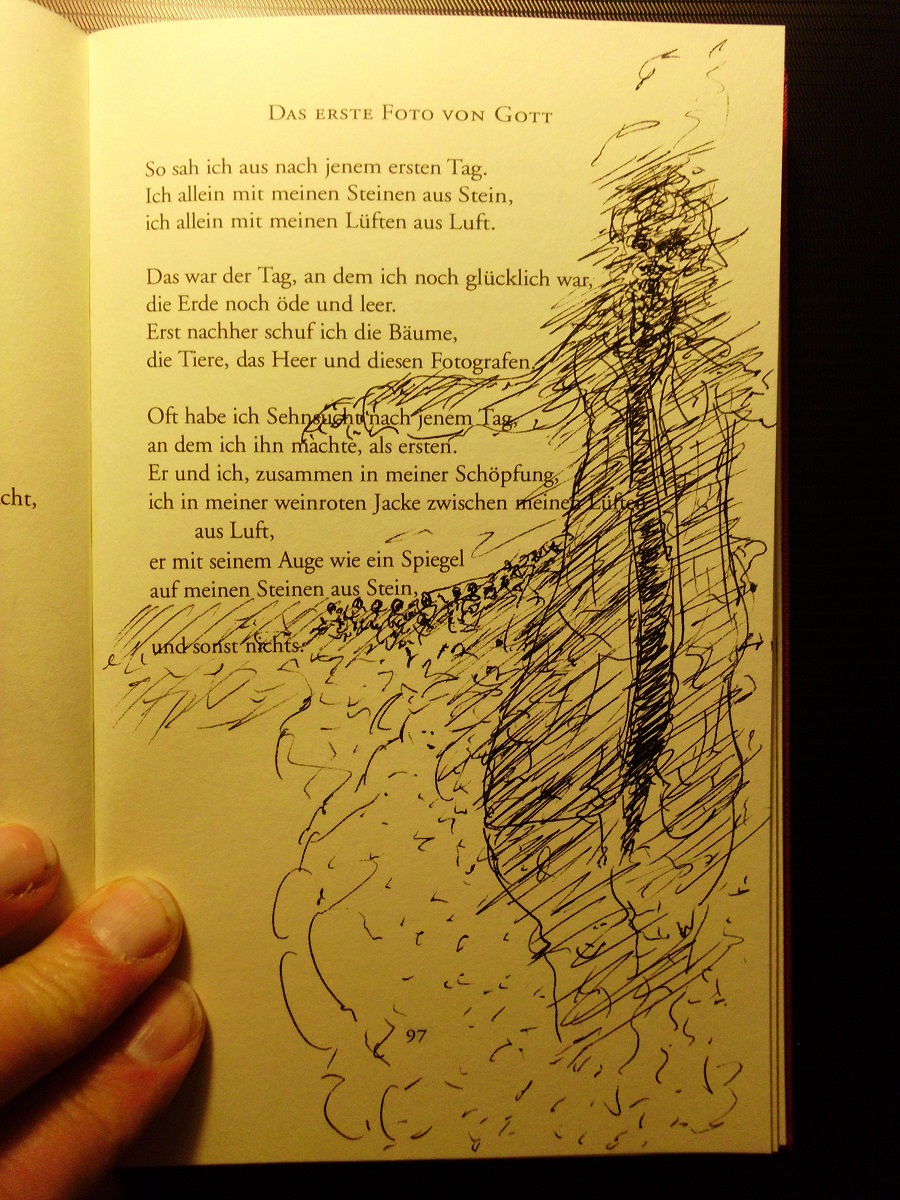 cht,
DAS ERSTE FOTO VON GOTT
So sah ich aus nach jenem ersten Tag.
Ich allein mit meinen Steinen aus Stein,
ich allein mit meinen Lüften aus Luft.
Das war der Tag, an dem ich noch glücklich war,
die Erde noch öde und leer.
Erst nachher schuf ich die Bäume,
die Tiere, das Heer und diesen Fotografen.
Oft habe ich Sehnsucht nach jenem Tag,
an dem ich ihn machte, als ersten.
Er und ich, zusammen in meiner Schöpfung,
ich in meiner weinroten Jacke zwischen meinen Lüften
aus Luft,
er mit seinem Auge wie ein Spiegel
auf meinen Steinen aus Stein,
und sonst nichts.
97